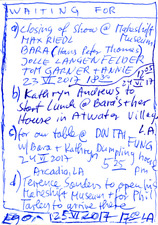 WAITING FOR
a) closing of Show @ Maheshuft Museum
MAX RIEDL
BARA (Hans Peter Thomas)
JOLLE LANGENFELDER
TOM GARNER + ANNIE
23 VI 2017 18:35
b) Kathryn Andrews to
start Lunch @ Bara's + her
House in Atwater Village
LA
c) for our table @ DIN TAI FUNG
w/ Bara + Kathryn Dumpling House
24 VI 2017 5:25 pm
Arcadia, LA
d) Terence Sanders to open his
Maheshuft Museum + for Phil
Tarley to arrive there
25 VI 2017 LA